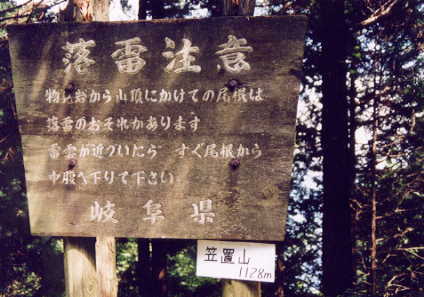 落雷注意
物見岩から山頂にかけての尾根は
落雷のおそれがあります
雷雲が近づいたら すぐ尾根から
中腹へ下りて下さい
岐阜県
笠置山
1128m